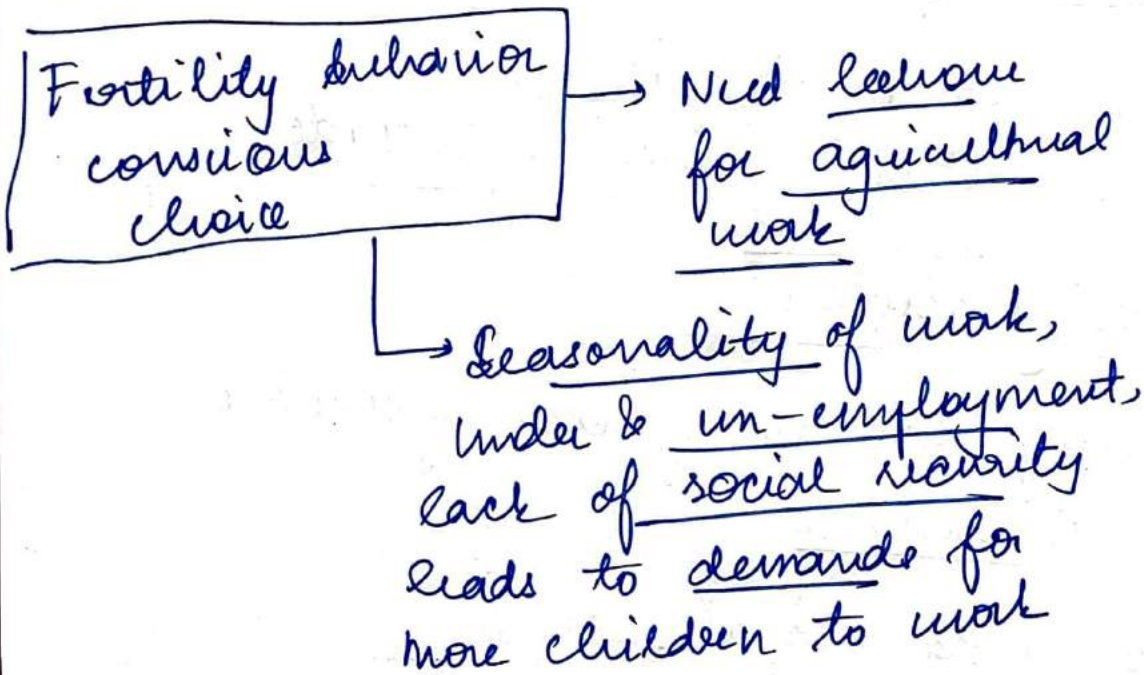 Fertility behavior
conscious
choice
Need labour
for agricultural
work
Seasonality of work,
under & un-employment,
lack of social security
leads to demands for
more children to work